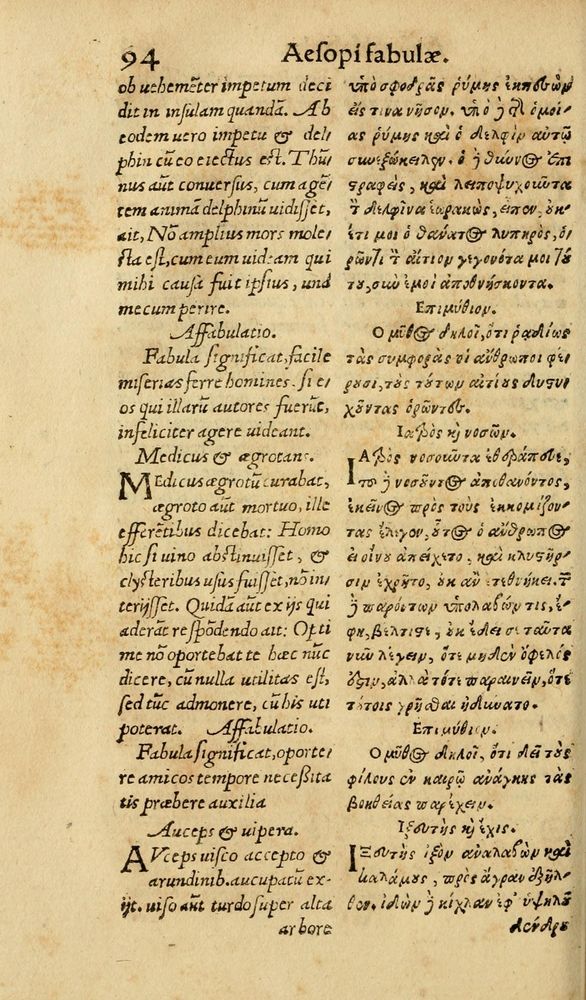 94 Aesopi fabulæ.
ob uehemẽter impetum deci
dit in insulam quandã. Ab
eodem uero impetu & del,
phin cũ eo eiectus est. Thũ,
nus aũt conuersus, cum agẽ,
tem animã delphinũ uidisset,
ait, Nõ amplius mors mole,
sta est, cum eum uideam qui
mihi causa fuit ipsius, unà
mecum perire.
Affabulatio.
Fabula significat, facile
miserias ferre homines. si e,
os qui illarũ autores fuerũt,
infeliciter agere uideant.
Medicus & ægrotans.
MEdicus ægrotũ curabat,
ægroto aũt mortuo, ille
efferẽtibus dicebat: Homo
hic si uino abstinuisset, &
clysteribus usus fuisset, nõ in,
terijsset. Quidã aũt ex ijs qui
aderãt respõdendo ait: Opti
me nõ oportebat te hæc nũc
dicere, cũ nulla utilitas est,
sed tũc admonere, cũ his uti
poterat. Affabulatio.
Fabula significat, oporte,
re amicos tempore necessita
tis præbere auxilia
Auceps & uipera.
AVceps uisco accepto &
arundinib. aucupatũ ex,
ijt. uiso aũt turdo super alta
arbore
ὑπὸ σφοδρᾶς ῥύμης ἐκπεσὼν
εἴς τινα νῆσον. ὑπὸ ἢ τῆς ὁμοί,
ας ῥύμης καὶ ὁ δελφὶν αὐτῷ
συνεξώκειλεν. ὁ ἢ θύννος ἐπι
στραφεὶς, καὶ λειποψυχοῦντα
τὸν δελφῖνα ἑωρακὼς, εἶπεν, οὐκ
ἔτι μοι ὁ θάνατος λυπηρὸς, ὁ,
ρῶντι τὸν αἴτιον γεγονότα μοι τού
του, σὺν ἐμοὶ ἀποθνήσκοντα.
Επιμύθιον.
Ο μῦθος δηλοῖ, ὅτι ῥᾳδίως
τὰς συμφορὰς οἱ ἄνθρωποι φέ,
ρουσι, τοὺς τούτων αἰτίους δυστυ,
χοῦντας ὁρῶντες.
Ιατρὸς καὶ νοσῶν.
ΙΑτρὸς νοσοῦντα ἐθεράπευε,
τοῦ ἢ νοσοῦντος ἀποθανόντος,
ἐκεῖνος πρὸς τοὺς ἐκκομίζον,
τας ἔλεγεν, οὗτος ὁ ἄνθρωπος
εἰ οἴνου ἀπείχετο, καὶ κλυστῆρ,
σιν ἐχρῆτο, οὐκ ἂν ἐτεθνήκει. τῶν
ἢ παρόντων ὑπολαβών τις, ἔ,
φη, βέλτιστε, οὐκ ἔδει σε ταῦτα
νῦν λέγειν, ὅτε μηδὲν ὄφελός
ἐστιν, ἀλλὰ τότε παραινεῖν, ὅτε
τούτοις χρῆσθαι ἠδύνατο.
Επιμύθιον.
Ο μῦθος δηλοῖ, ὅτι δεῖ τοὺς
φίλους ἐν καιρῷ ἀνάγκης τὰς
βοηθείας παρέχειν.
Ιξευτὴς καὶ ἔχις.
ΙΞευτὴς ἰξὸν ἀναλαβὼν καὶ
καλάμους, πρὸς ἄγραν ἐξῆλ,
θεν. ἰδὼν ἢ κίχλαν ἐφ' ὑψηλοῦ
δένδρου